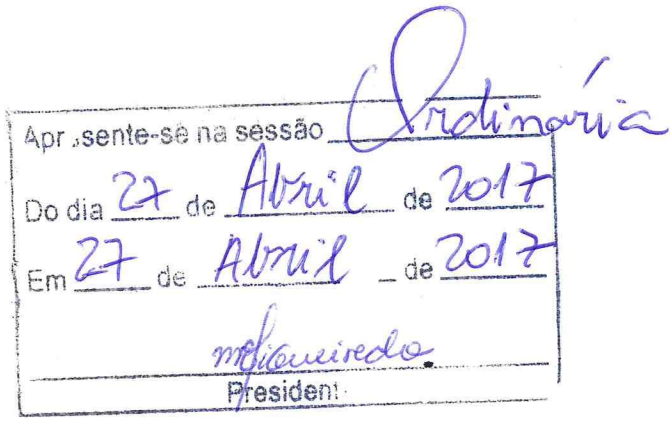 Apresente-se na sessão Ordinária
Do dia 27 de Abril de 2017
Em 27 de Abril de 2017
Presidente